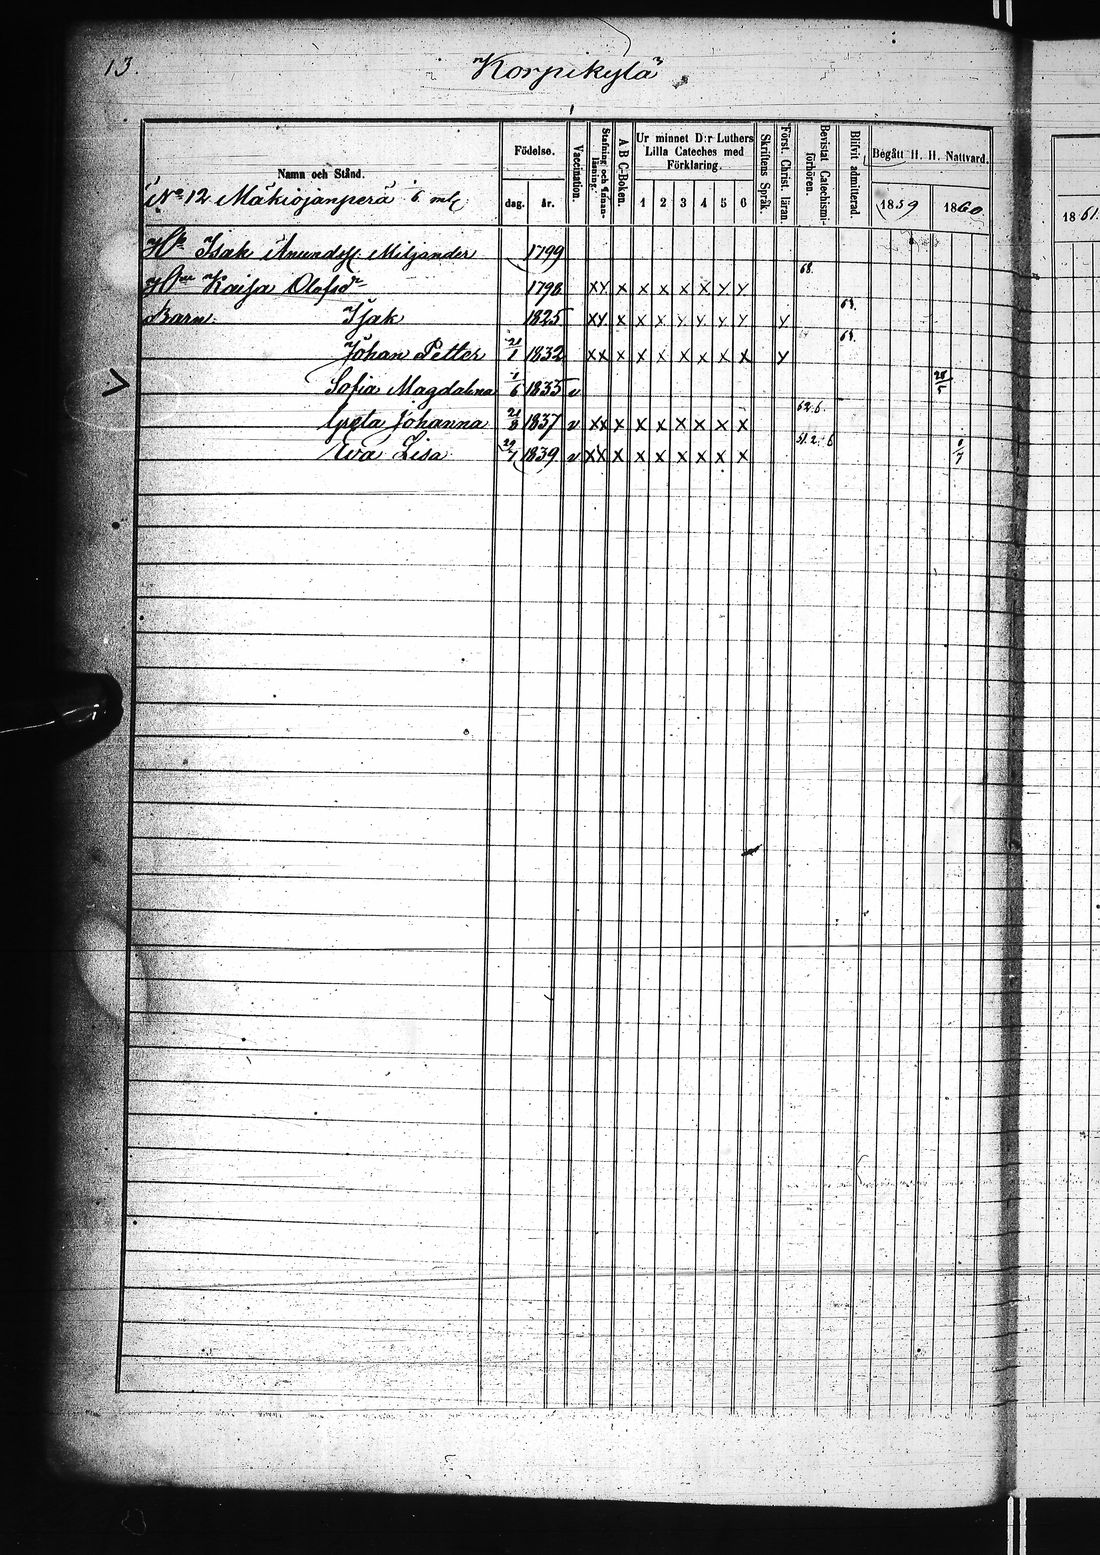 13.
Korpikylä
Namn och Stånd.
Födelse.
dag. år.
Vaccination.
Stafning och Innan-läsning.
A B C-Boken.
Ur minnet D:r Luthers
Lilla Cateches med
Förklaring.
1 2 3 4 5 6
Skriftens Språk.
Först. Christ. läran.
Bevistat Catechismi-förhören.
Blifvit admitterad
Begått H. H. Nattvard.
1859 1860
1861
No 12 Mäkiojanperä 6 mtl
Isak Amundss. Miljander 1799
Kaisa Olofsdr 1798 x y x x x x x y y 68.
Barn: Isak 1825 x y x x x y y y y y 63.
Johan Petter 21/1 1832 x x x x x x x x x y 63.
Sofia Magdalena 1/6 1835 v 28/5
Greta Johanna 21/8 1837 v x x x x x x x x x 62.6.
Eva Lisa 29/7 1839 v x x x x x x x x x 51.2.6 1/7